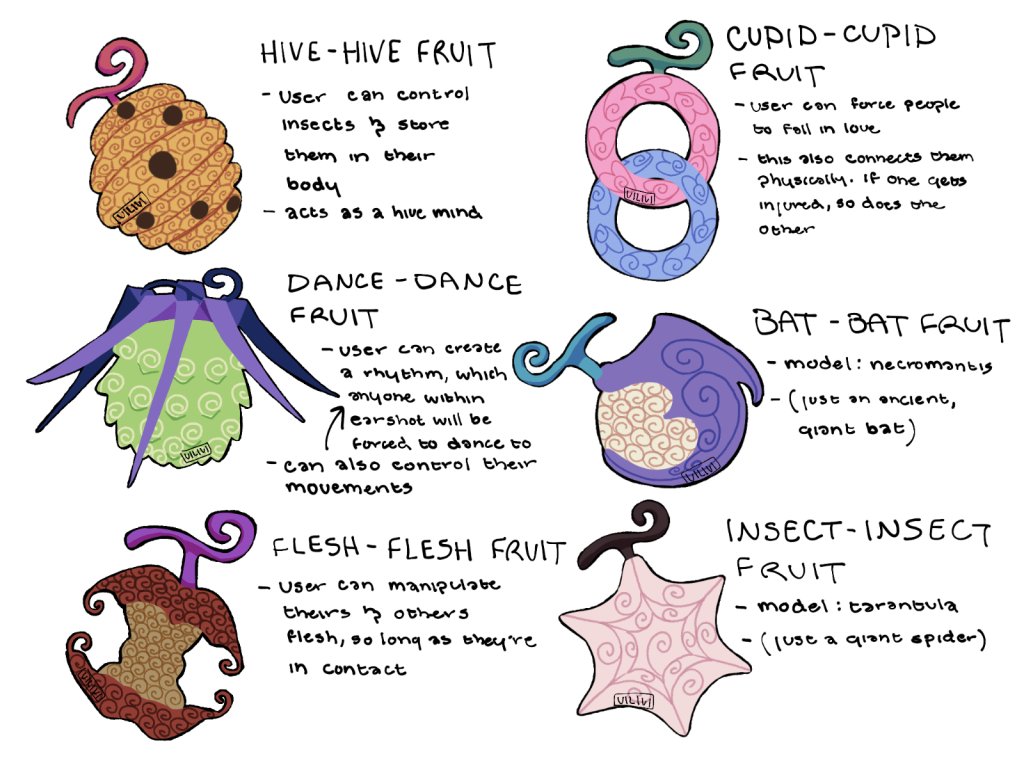 HIVE-HIVE FRUIT
- user can control
insects & store
them in their
body
- acts as a hive mind
CUPID-CUPID
FRUIT
- user can force people
to fall in love
- this also connects them
physically. If one gets
injured, so does the
other
DANCE-DANCE
FRUIT
- user can create
a rhythm, which
anyone within
earshot will be
forced to dance to
- can also control their
movements
BAT-BAT FRUIT
- model: necromantis
- (just an ancient,
giant bat)
FLESH-FLESH FRUIT
- user can manipulate
theirs & others
flesh, so long as they're
in contact
INSECT-INSECT
FRUIT
- model: tarantula
- (just a giant spider)